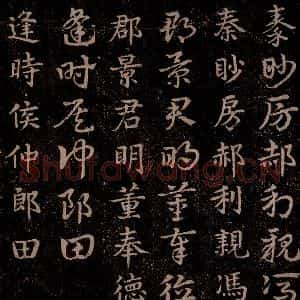 秦眇房郝利親馮
秦眇房郝利親馮
郡景君明董奉德
郡景君明董奉德
逢時侯仲郎田
逢時侯仲郎田
Shufawang.CN